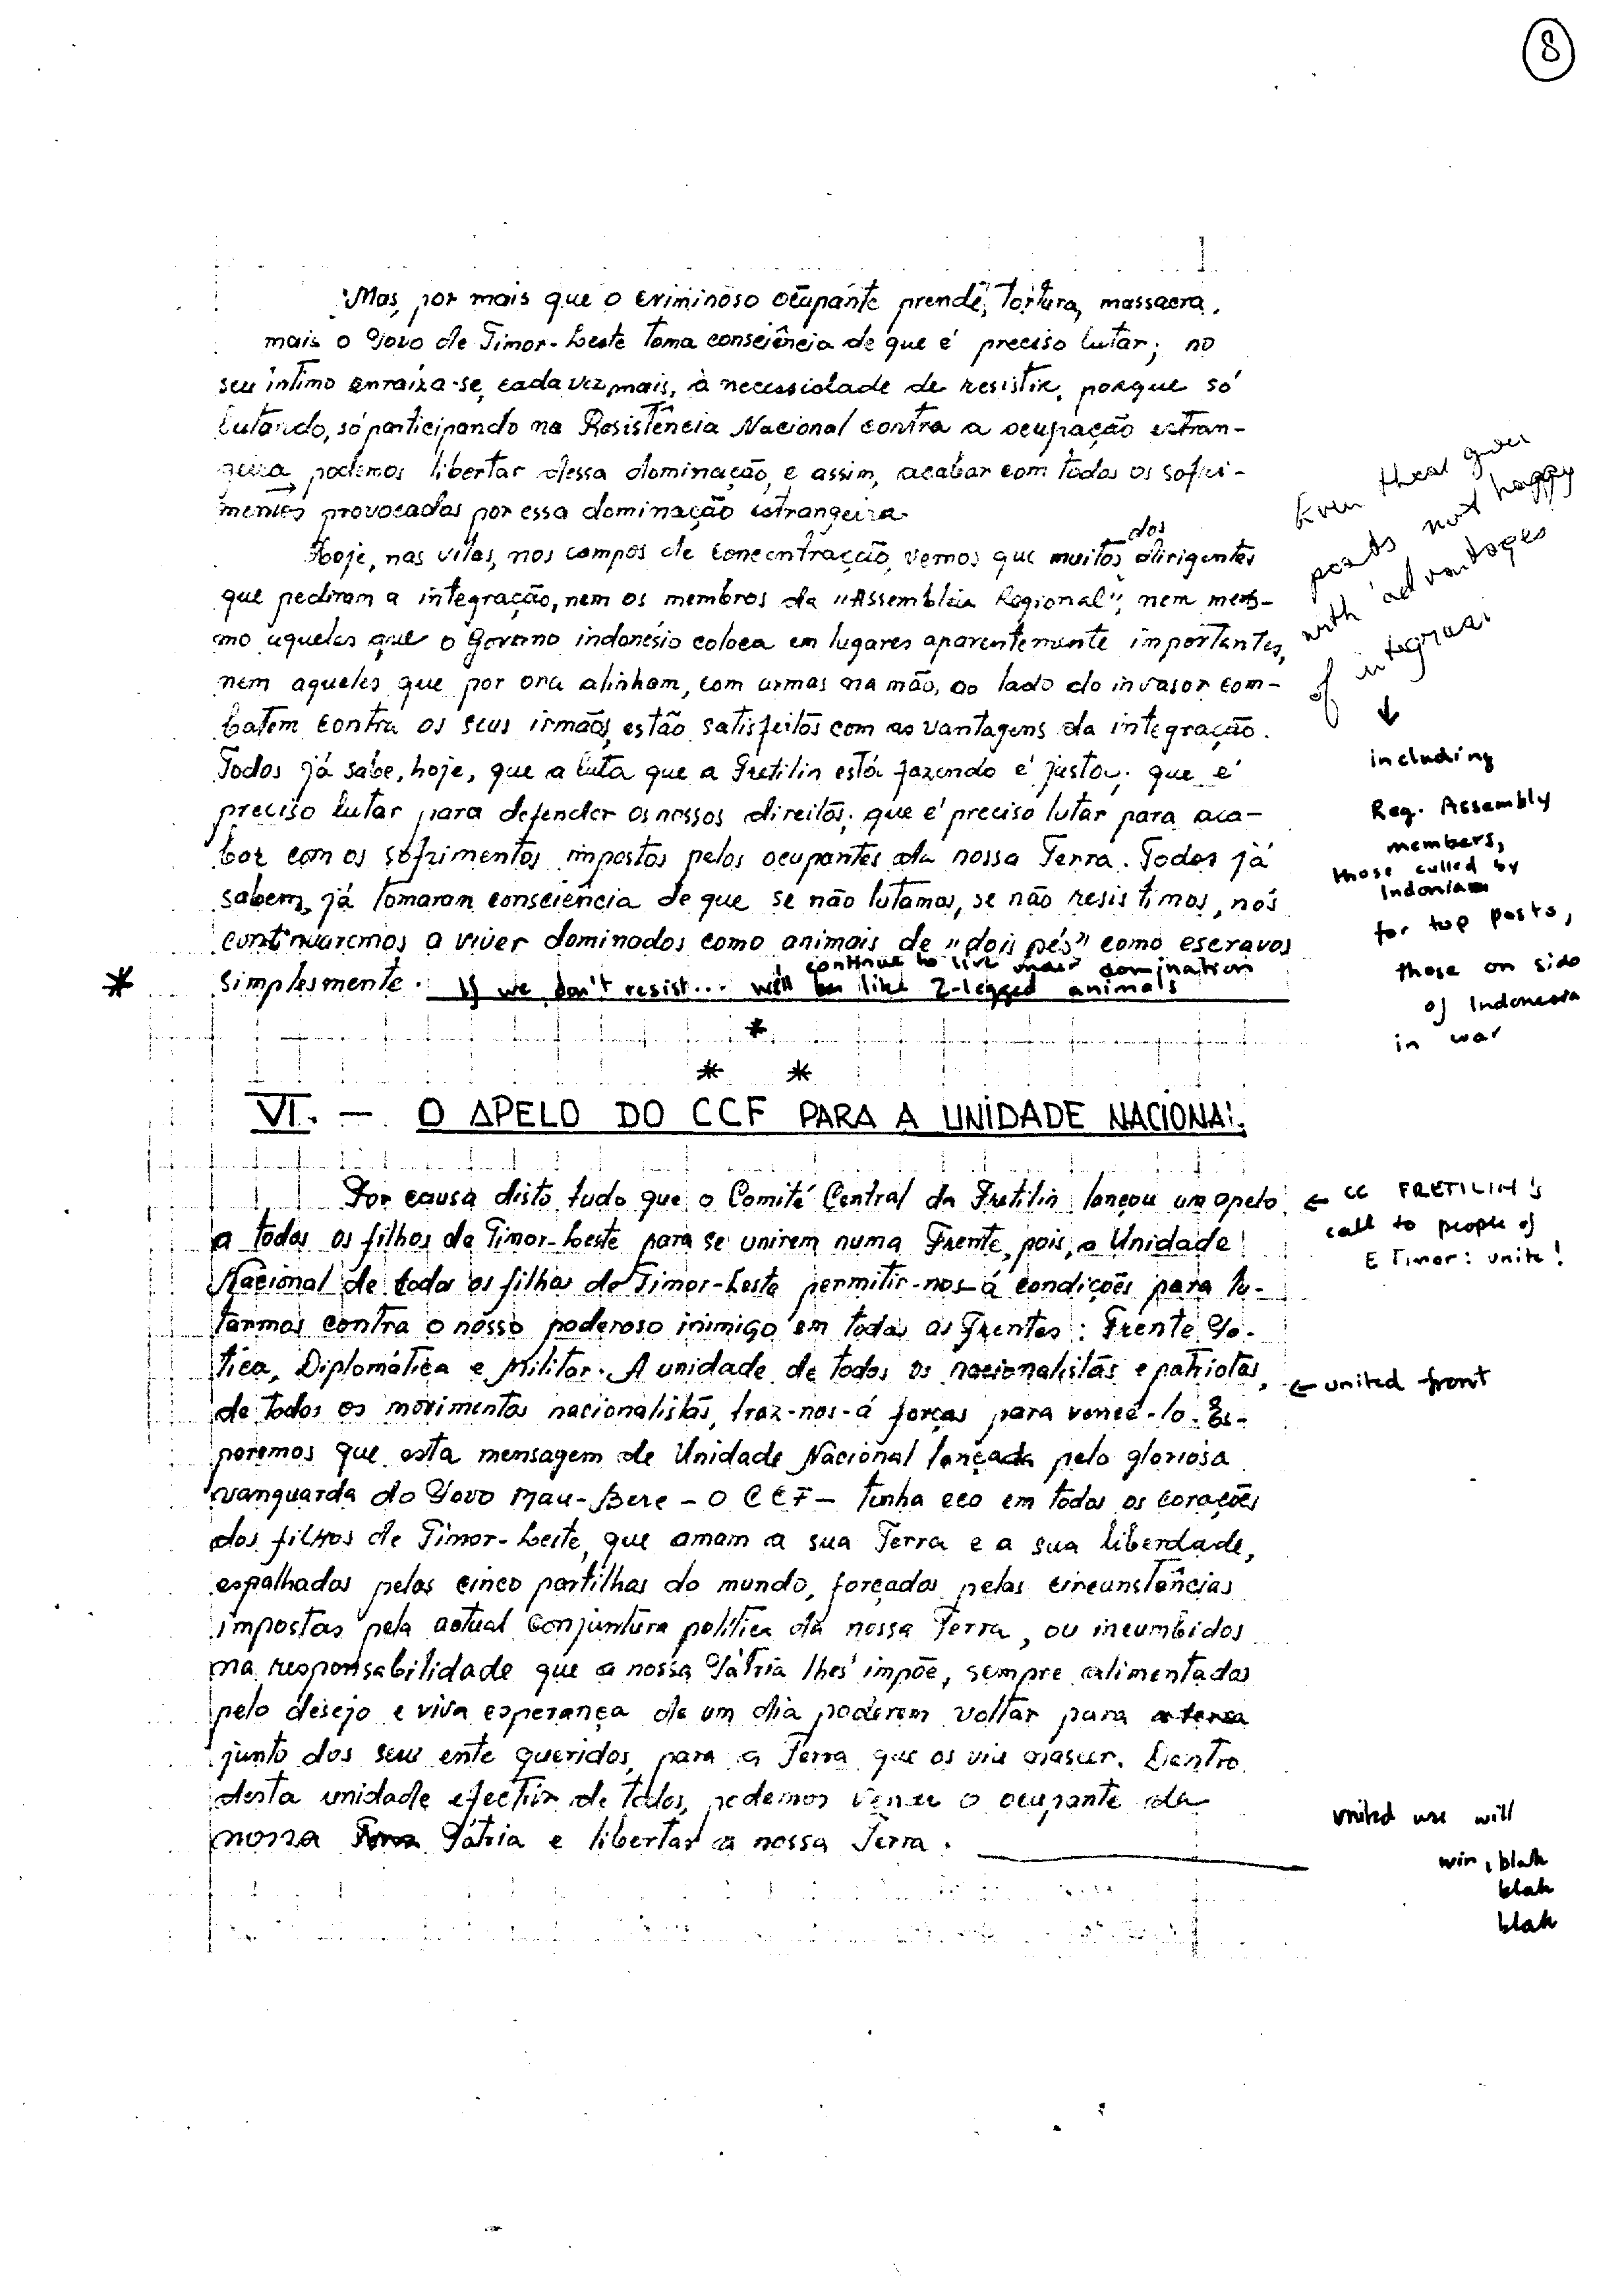 8
Mas, por mais que o criminoso ocupante prende, tortura, massacra,
mais o Povo de Timor-Leste toma consciência de que é preciso lutar; no
seu íntimo enraíza-se, cada vez mais, a necessidade de resistir, porque só
lutando, só participando na Resistência Nacional contra a ocupação estran-
geira, podemos libertar dessa dominação, e assim, acabar com todos os sofri-
mentos provocados por essa dominação estrangeira.
dos
Hoje, nas vilas, nos campos de concentração, vemos que muitos dirigentes
que pediram a integração, nem os membros da "Assembleia Regional", nem mes-
mo aqueles que o Governo indonésio coloca em lugares aparentemente importantes,
nem aqueles que por ora alinham, com armas na mão, ao lado do invasor com-
batem contra os seus irmãos, estão satisfeitos com as vantagens da integração.
Todos já sabe, hoje, que a luta que a Fretilin está fazendo é justa; que é
preciso lutar para defender os nossos direitos; que é preciso lutar para aca-
bar com os sofrimentos impostos pelos ocupantes da nossa Terra. Todos já
sabem, já tomaram consciência de que se não lutamos, se não resistimos, nós
continuaremos a viver dominados como animais de "dois pés" como escravos
simplesmente.
continue to live under domination
* If we don't resist... will be like 2-legged animals
Even those given
posts not happy
with advantages
of integrasi
↓
including
Reg. Assembly
members,
those culled by
Indonesian
for top posts,
those on side
of Indonesia
in war
*
* *
VI. - O APELO DO CCF PARA A UNIDADE NACIONAL
Por causa disto tudo que o Comité Central da Fretilin lançou um apelo
a todos os filhos de Timor-Leste para se unirem numa Frente, pois, a Unidade
Nacional de todos os filhos de Timor-Leste permitir-nos-á condições para lu-
tarmos contra o nosso poderoso inimigo em todas as Frentes: Frente Po-
tica, Diplomática e Militar. A unidade de todos os nacionalistas e patriotas,
de todos os movimentos nacionalistas, traz-nos-á forças para vencê-lo. Es-
peremos que esta mensagem de Unidade Nacional lançada pelo gloriosa
vanguarda do Povo Mau-Bere - O CCF - tenha eco em todos os corações
dos filhos de Timor-Leste, que amam a sua Terra e a sua liberdade,
espalhados pelas cinco partilhas do mundo, forçados pelas circunstâncias
impostas pela actual conjuntura política da nossa Terra, ou incumbidos
na responsabilidade que a nossa Pátria lhes impõe, sempre alimentados
pelo desejo e viva esperança de um dia poderem voltar para a terra
junto dos seus ente queridos, para a Terra que os viu nascer. Dentro
desta unidade efectiva de todos, podemos vencer o ocupante da
nossa Pátria e libertar a nossa Terra.
← CC FRETILIN's
call to people of
E Timor: unite!
← united front
united we will
win, blah
blah
blah